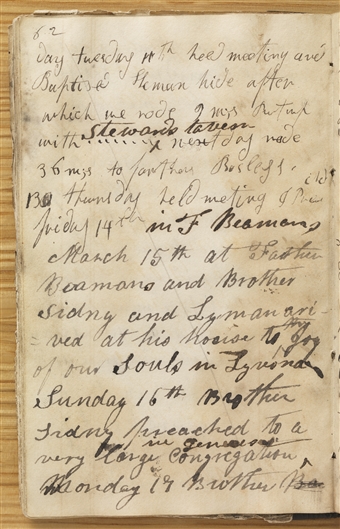 62
day tuesday 11th held meeting and
Baptised Heman hide after
which we rode 9 mls Put up
with Stewards tavern
next day rode
36 mls to farthers Bosleys.
13 thursday held meting
friday 14th in F Beamans
March 15th at Father
Beamans and Brother
Sidny and Lyman ari-
= ved at his house to the Joy
of our Souls in Lyvona
Sunday 16th Brother
Sidny preached to a
very large congregation
in geneseo
Monday 17 Brother